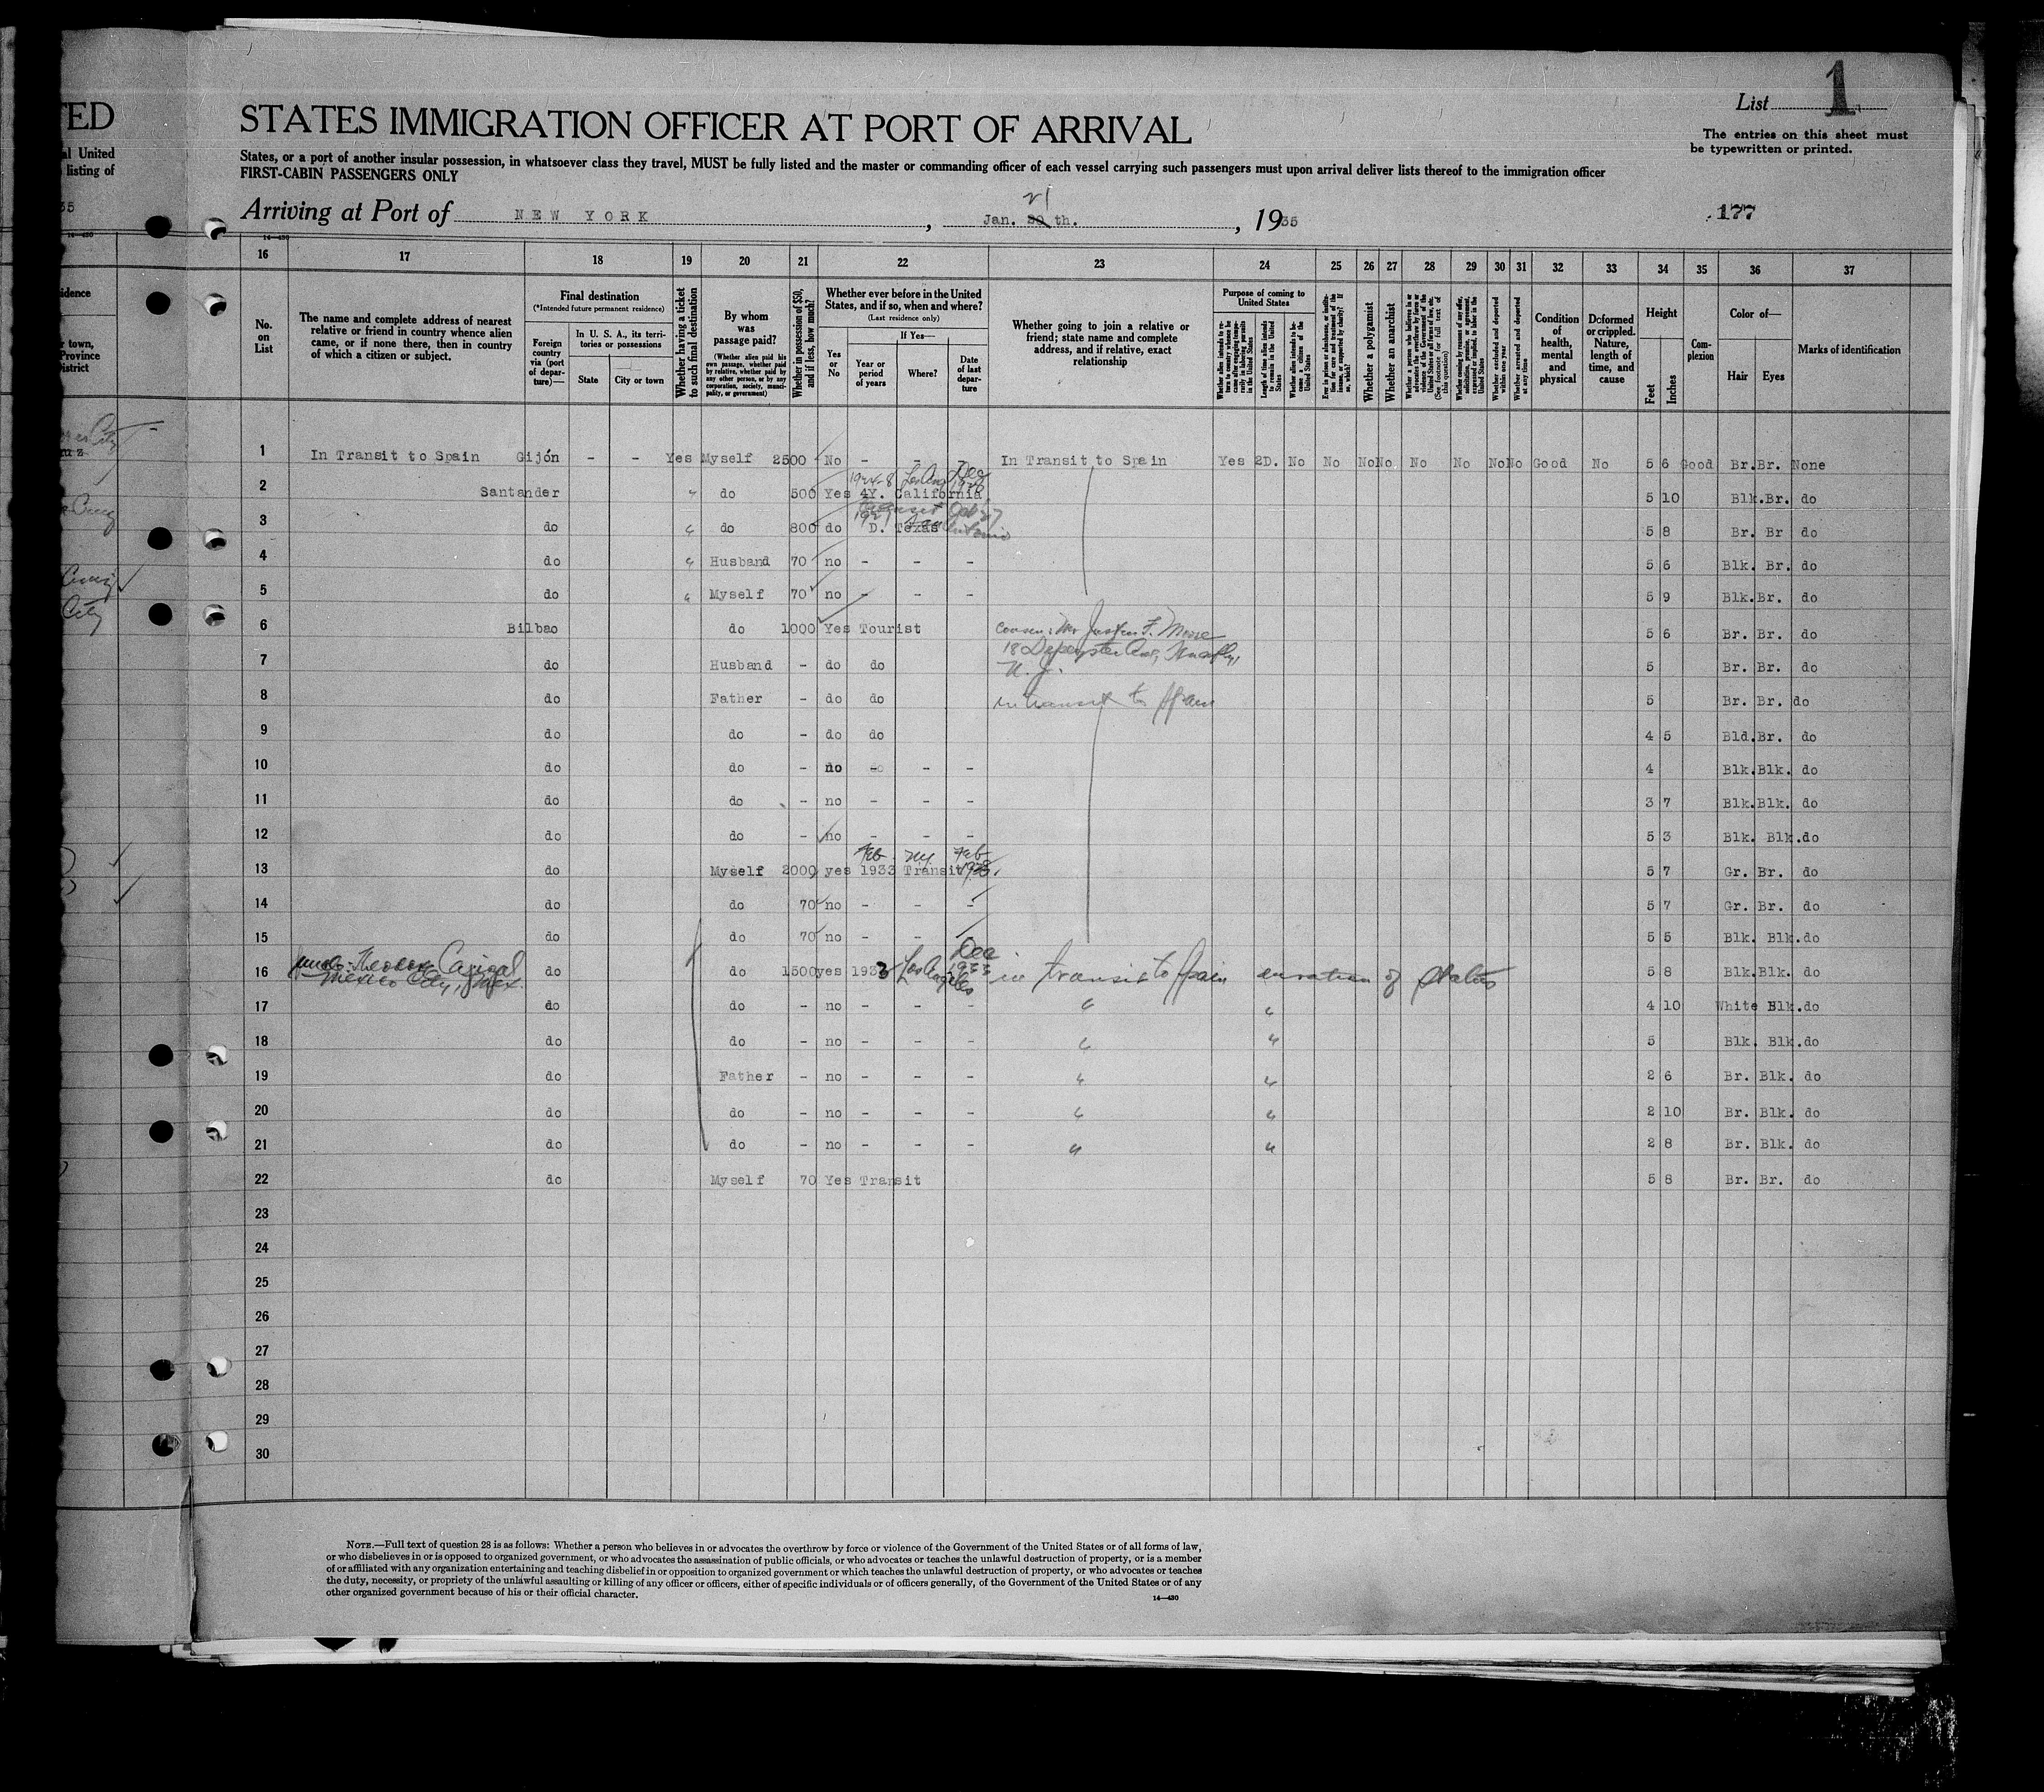 TED
al United
listing of
35
14-430
idence
r town,
Province
District
List 1
STATES IMMIGRATION OFFICER AT PORT OF ARRIVAL
The entries on this sheet must
be typewritten or printed.
States, or a port of another insular possession, in whatsoever class they travel, MUST be fully listed and the master or commanding officer of each vessel carrying such passengers must upon arrival deliver lists thereof to the immigration officer
FIRST-CABIN PASSENGERS ONLY
21
Arriving at Port of NEW YORK, Jan. 20 th., 1935
177
14-430
16 17 18 19 20 21 22 23 24 25 26 27 28 29 30 31 32 33 34 35 36 37
No. on List
The name and complete address of nearest relative or friend in country whence alien came, or if none there, then in country of which a citizen or subject.
Final destination
(*Intended future permanent residence)
Foreign country via (port of departure)—
In U. S. A., its territories or possessions
State
City or town
Whether having a ticket to such final destination
By whom was passage paid?
(Whether alien paid his own passage, whether paid by relative, whether paid by any other person, or by any corporation, society, municipality, or government)
Whether in possession of $50, and if less, how much?
Whether ever before in the United States, and if so, when and where?
(Last residence only)
Yes or No
If Yes—
Year or period of years
Where?
Date of last departure
Whether going to join a relative or friend; state name and complete address, and if relative, exact relationship
Purpose of coming to United States
Length of time alien intends to remain in the United States
Whether alien intends to become a citizen of the United States
Whether a polygamist
Whether an anarchist
Whether excluded and deported within one year
Whether arrested and deported at any time
Condition of health, mental and physical
Deformed or crippled. Nature, length of time, and cause
Height
Feet
Inches
Complexion
Color of—
Hair
Eyes
Marks of identification
1 In Transit to Spain Gijón - - Yes Myself 2500 No - - - In Transit to Spain Yes 2D. No No No No No No No No Good No 5 6 Good Br. Br. None
1924-8 Los Ang Dec
2 Santander " do 500 Yes 4Y. California 5 10 Blk. Br. do
1927 Transit Oct 27
3 do " do 800 do D. Texas San Antonio 5 8 Br. Br do
4 do " Husband 70 no - - - 5 6 Blk. Br. do
5 do " Myself 70 no - - - 5 9 Blk. Br. do
6 Bilbao do 1000 Yes Tourist 5 6 Br. Br. do
N. J.
7 do Husband - do do 5 Br. Br. do
8 do Father - do do in transit to Spain 5 Br. Br. do
9 do do - do do 4 5 Bld. Br. do
10 do do - no - - - 4 Blk. Blk. do
11 do do - no - - - 3 7 Blk. Blk. do
12 do do - no - - - 5 3 Blk. Blk. do
Feb NY Feb
13 do Myself 2000 yes 1933 Transit 1933 5 7 Gr. Br. do
14 do do 70 no - - - 5 7 Gr. Br. do
15 do do 70 no - - - 5 5 Blk. Blk. do
Mexico City, Mex.
16 do do 1500 yes 1933 Los Angeles Dec 1933 in transit to Spain duration of status 5 8 Blk. Blk. do
17 do do - no - - - " " 4 10 White Blk. do
18 do do - no - - - " " 5 Blk. Blk. do
19 do Father - no - - - " " 2 6 Br. Blk. do
20 do do - no - - - " " 2 10 Br. Blk. do
21 do do - no - - - " " 2 8 Br. Blk. do
22 do Myself 70 Yes Transit 5 8 Br. Br. do
23
24
25
26
27
28
29
30
NOTE.—Full text of question 28 is as follows: Whether a person who believes in or advocates the overthrow by force or violence of the Government of the United States or of all forms of law,
or who disbelieves in or is opposed to organized government, or who advocates the assassination of public officials, or who advocates or teaches the unlawful destruction of property, or is a member
of or affiliated with any organization entertaining and teaching disbelief in or opposition to organized government or which teaches the unlawful destruction of property, or who advocates or teaches
the duty, necessity, or propriety of the unlawful assaulting or killing of any officer or officers, either of specific individuals or of officers generally, of the Government of the United States or of any
other organized government because of his or their official character.
14-430